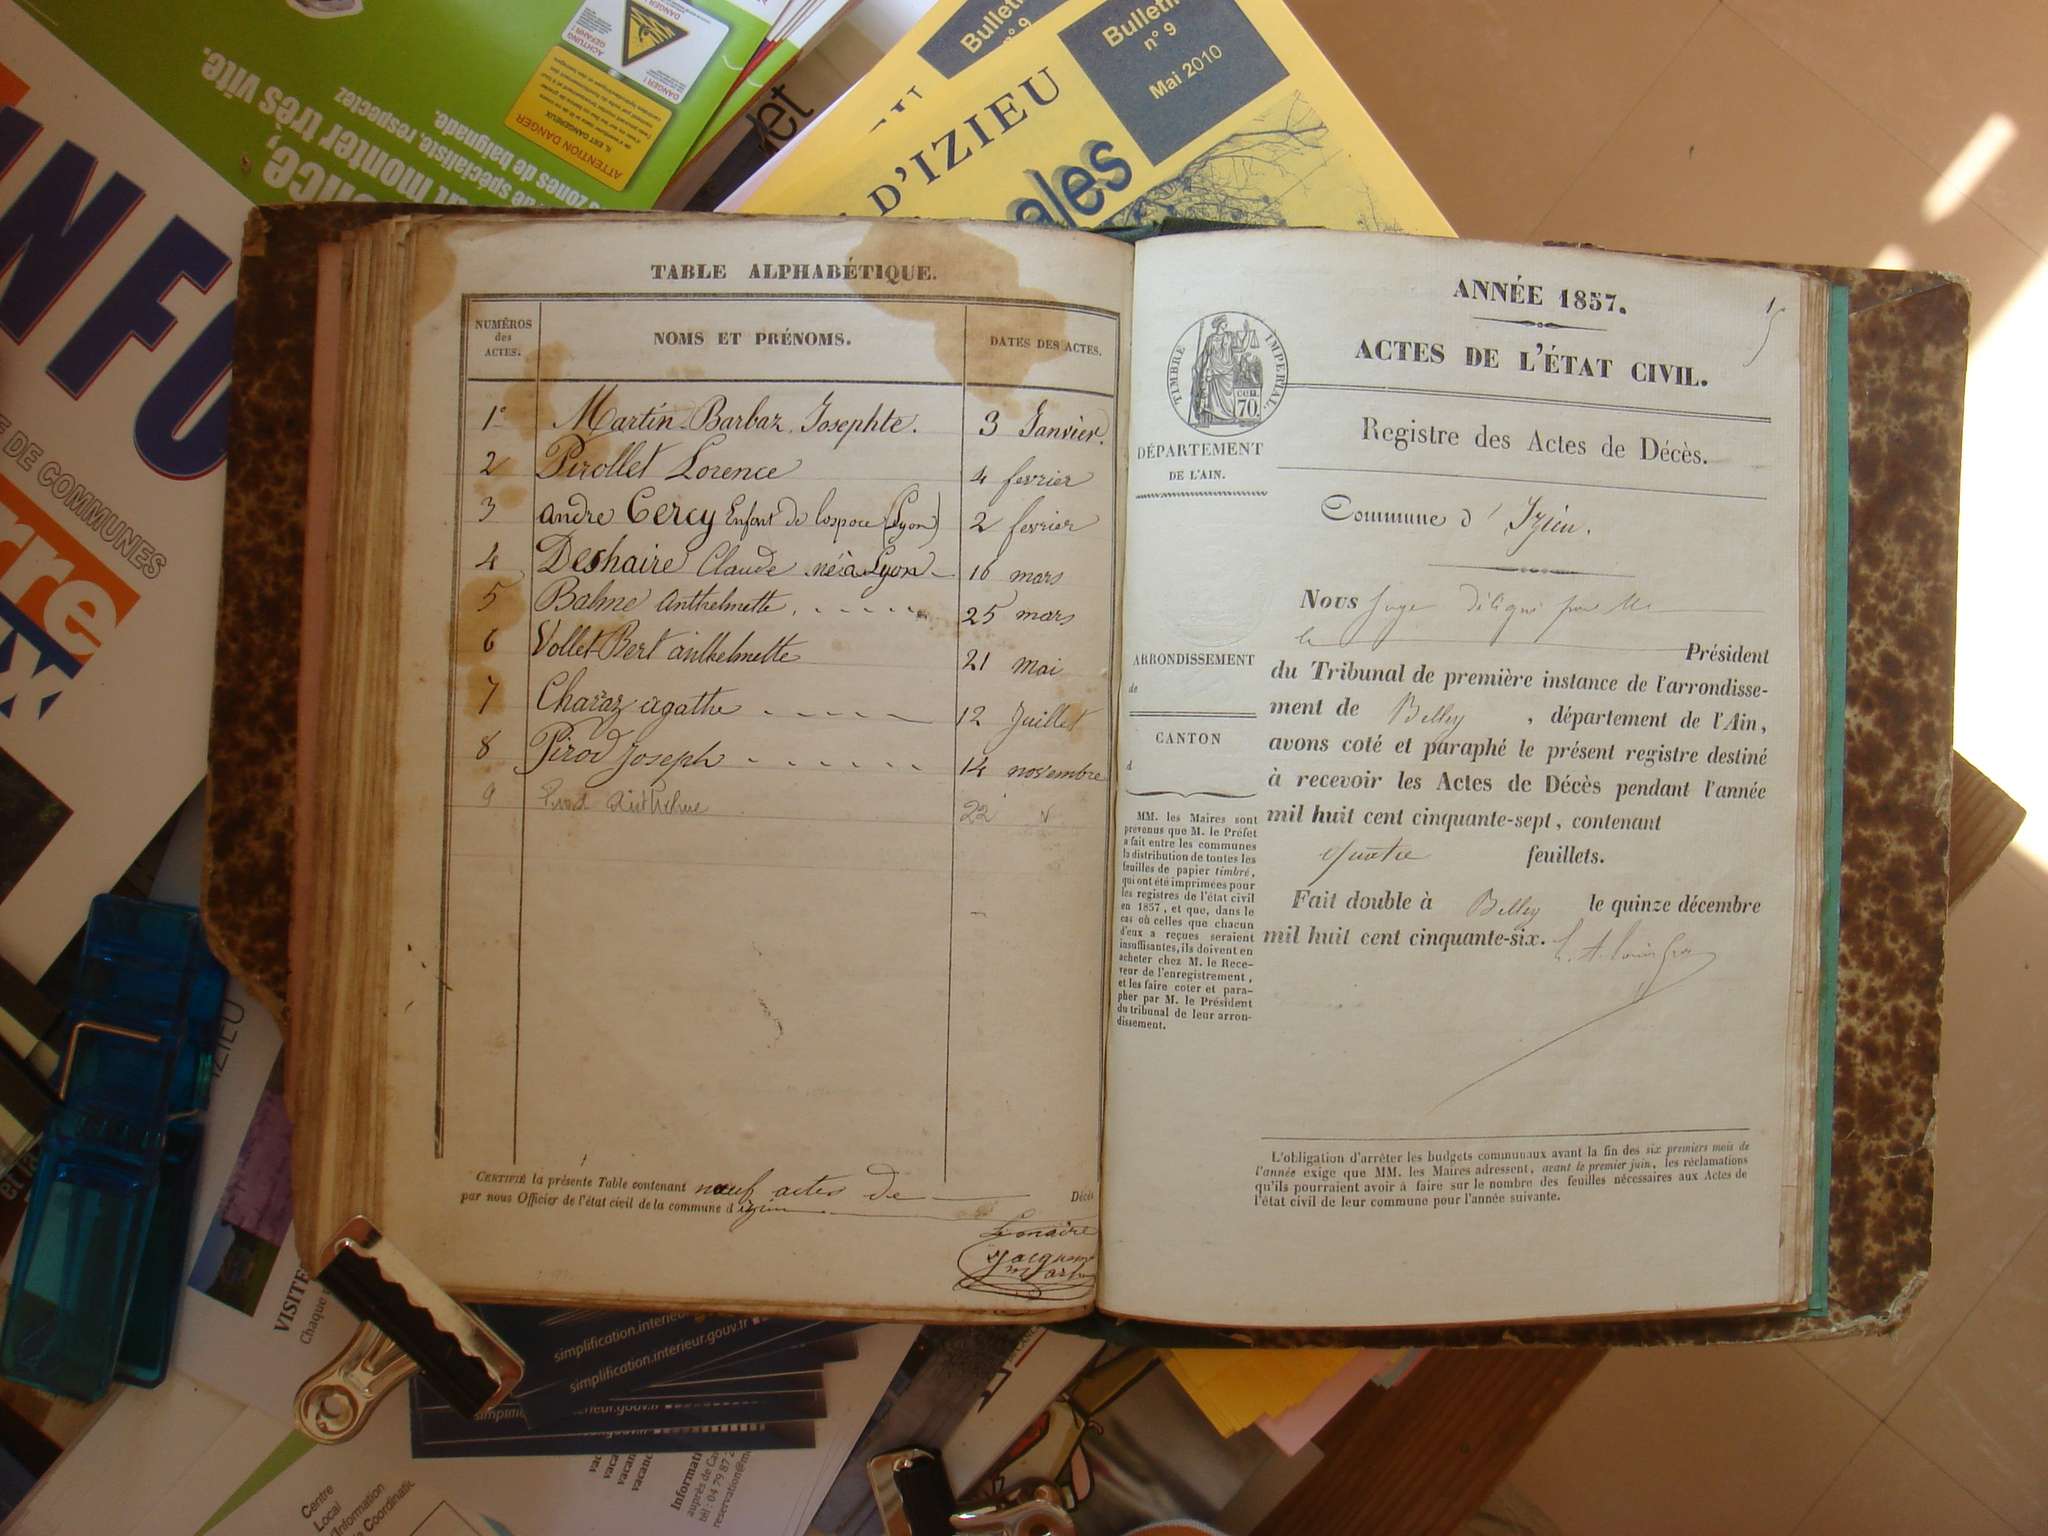 INFO
E DE COMMUNES
nce,
t monter très vite.
ue spécialiste, respectez
s zones de baignade.
ATTENTION DANGER
DANGER !
ACHTUNG
GEFAHR !
Bulletin
n° 9
Bulletin
n° 9
Mai 2010
D'IZIEU
ales
TABLE ALPHABÉTIQUE.
NUMÉROS
des
ACTES.
NOMS ET PRÉNOMS.
DATES DES ACTES.
1° Martin-Barbaz Josephte. 3 Janvier.
2 Pirollet Lorence 4 fevrier
3 andre Cercy Enfant de lospoce (Lyon) 2 fevrier
4 Deshaire Claude né à Lyon 16 mars
5 Balme Anthelmette 25 mars
6 Vollet-Bert anthelmette 21 mai
7 Charaz agathe 12 Juillet
8 Pirod Joseph 14 novembre
9 Pirod 22
CERTIFIÉ la présente Table contenant neuf actes de Décès
par nous Officier de l'état civil de la commune d'izieu
Le maire
ANNÉE 1857.
ACTES DE L'ÉTAT CIVIL.
TIMBRE IMPÉRIAL.
70.
DÉPARTEMENT
DE L'AIN.
Registre des Actes de Décès.
Commune d'Izieu.
Nous Juge délégué par Mr
le Président
du Tribunal de première instance de l'arrondisse-
ment de Belley, département de l'Ain,
avons coté et paraphé le présent registre destiné
à recevoir les Actes de Décès pendant l'année
mil huit cent cinquante-sept, contenant
quatre feuillets.
Fait double à Belley le quinze décembre
mil huit cent cinquante-six.
ARRONDISSEMENT
de
CANTON
d
MM. les Maires sont
prévenus que M. le Préfet
a fait entre les communes
la distribution de toutes les
feuilles de papier timbré,
qui ont été imprimées pour
les registres de l'état civil
en 1857, et que, dans le
cas où celles que chacun
d'eux a reçues seraient
insuffisantes, ils doivent en
acheter chez M. le Rece-
veur de l'enregistrement,
et les faire coter et para-
pher par M. le Président
du tribunal de leur arron-
dissement.
L'obligation d'arrêter les budgets communaux avant la fin des six premiers mois de
l'année exige que MM. les Maires adressent, avant le premier juin, les réclamations
qu'ils pourraient avoir à faire sur le nombre des feuilles nécessaires aux Actes de
l'état civil de leur commune pour l'année suivante.
IZIEU
VISITE
Chaque
simplification.interieur.gouv.fr
simplification.interieur.gouv.fr
Centre
Local
d'Information
Coordinatic
Informati
auprès de Ca
tél : 04 79 87 2
reservation@m